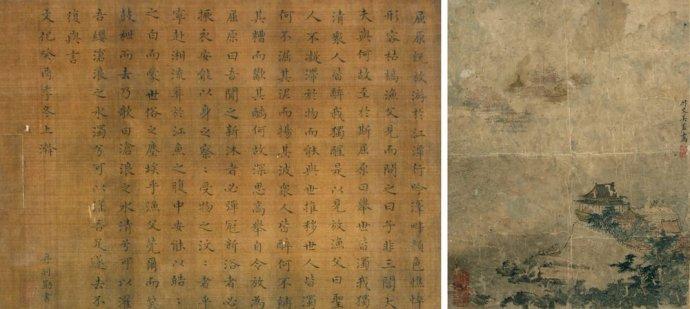 屈原既放游於江潭行吟澤畔顏色憔悴
形容枯槁漁父見而問之曰子非三閭大
夫與何故至於斯屈原曰舉世皆濁我獨
清衆人皆醉我獨醒是以見放漁父曰聖
人不凝滯於物而能與世推移世人皆濁
何不淈其泥而揚其波衆人皆醉何不餔
其糟而歠其醨何故深思高舉自令放為
屈原曰吾聞之新沐者必彈冠新浴者必
振衣安能以身之察:受物之汶:者乎
寧赴湘流葬於江魚之腹中安能以皓:
之白而蒙世俗之塵埃乎漁父莞爾而笑
鼓枻而去乃歌曰滄浪之水清兮可以濯
吾纓滄浪之水濁兮可以濯吾足遂去不
復與言
文化癸酉季冬上澣
書